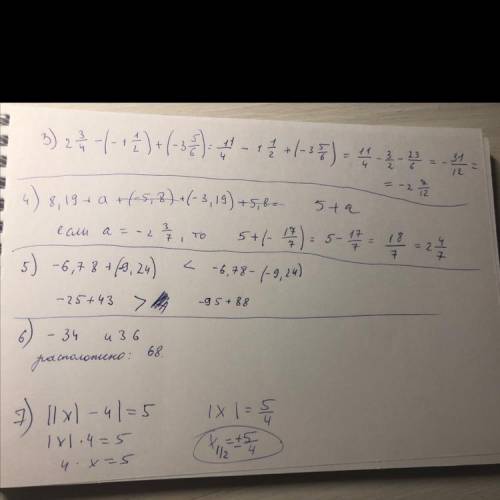 3) 2 3/4 - (-1 1/2) + (-3 5/6) = 11/4 - 1 1/2 + (-3 5/6) = 11/4 - 3/2 - 23/6 = -31/12 =
= -2 7/12
4) 8,19 + a + (-5,8) + (-3,19) + 5,8 = 5 + a
если a = -2 3/7, то 5 + (- 17/7) = 5 - 17/7 = 18/7 = 2 4/7
5) -6,78 + (-9,24) < -6,78 - (-9,24)
-25 + 43 > -95 + 88
6) -34 и 36
расположено: 68
7) ||x| - 4| = 5 |x| = 5/4
|x| · 4 = 5 x1/2 = ± 5/4
4 · x = 5